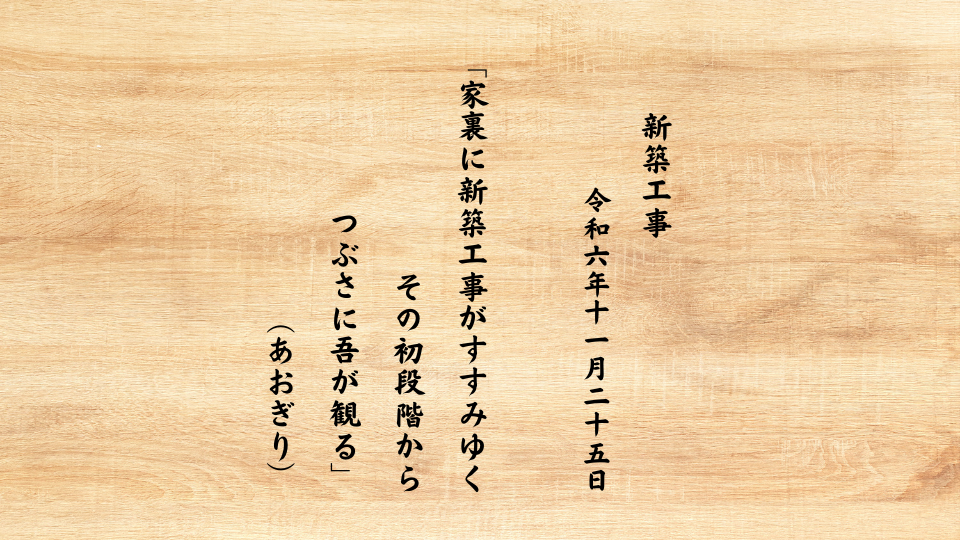 新築工事
令和六年十一月二十五日
「家裏に新築工事がすすみゆく
その初段階から
つぶさに吾が観る」
（あおぎり）